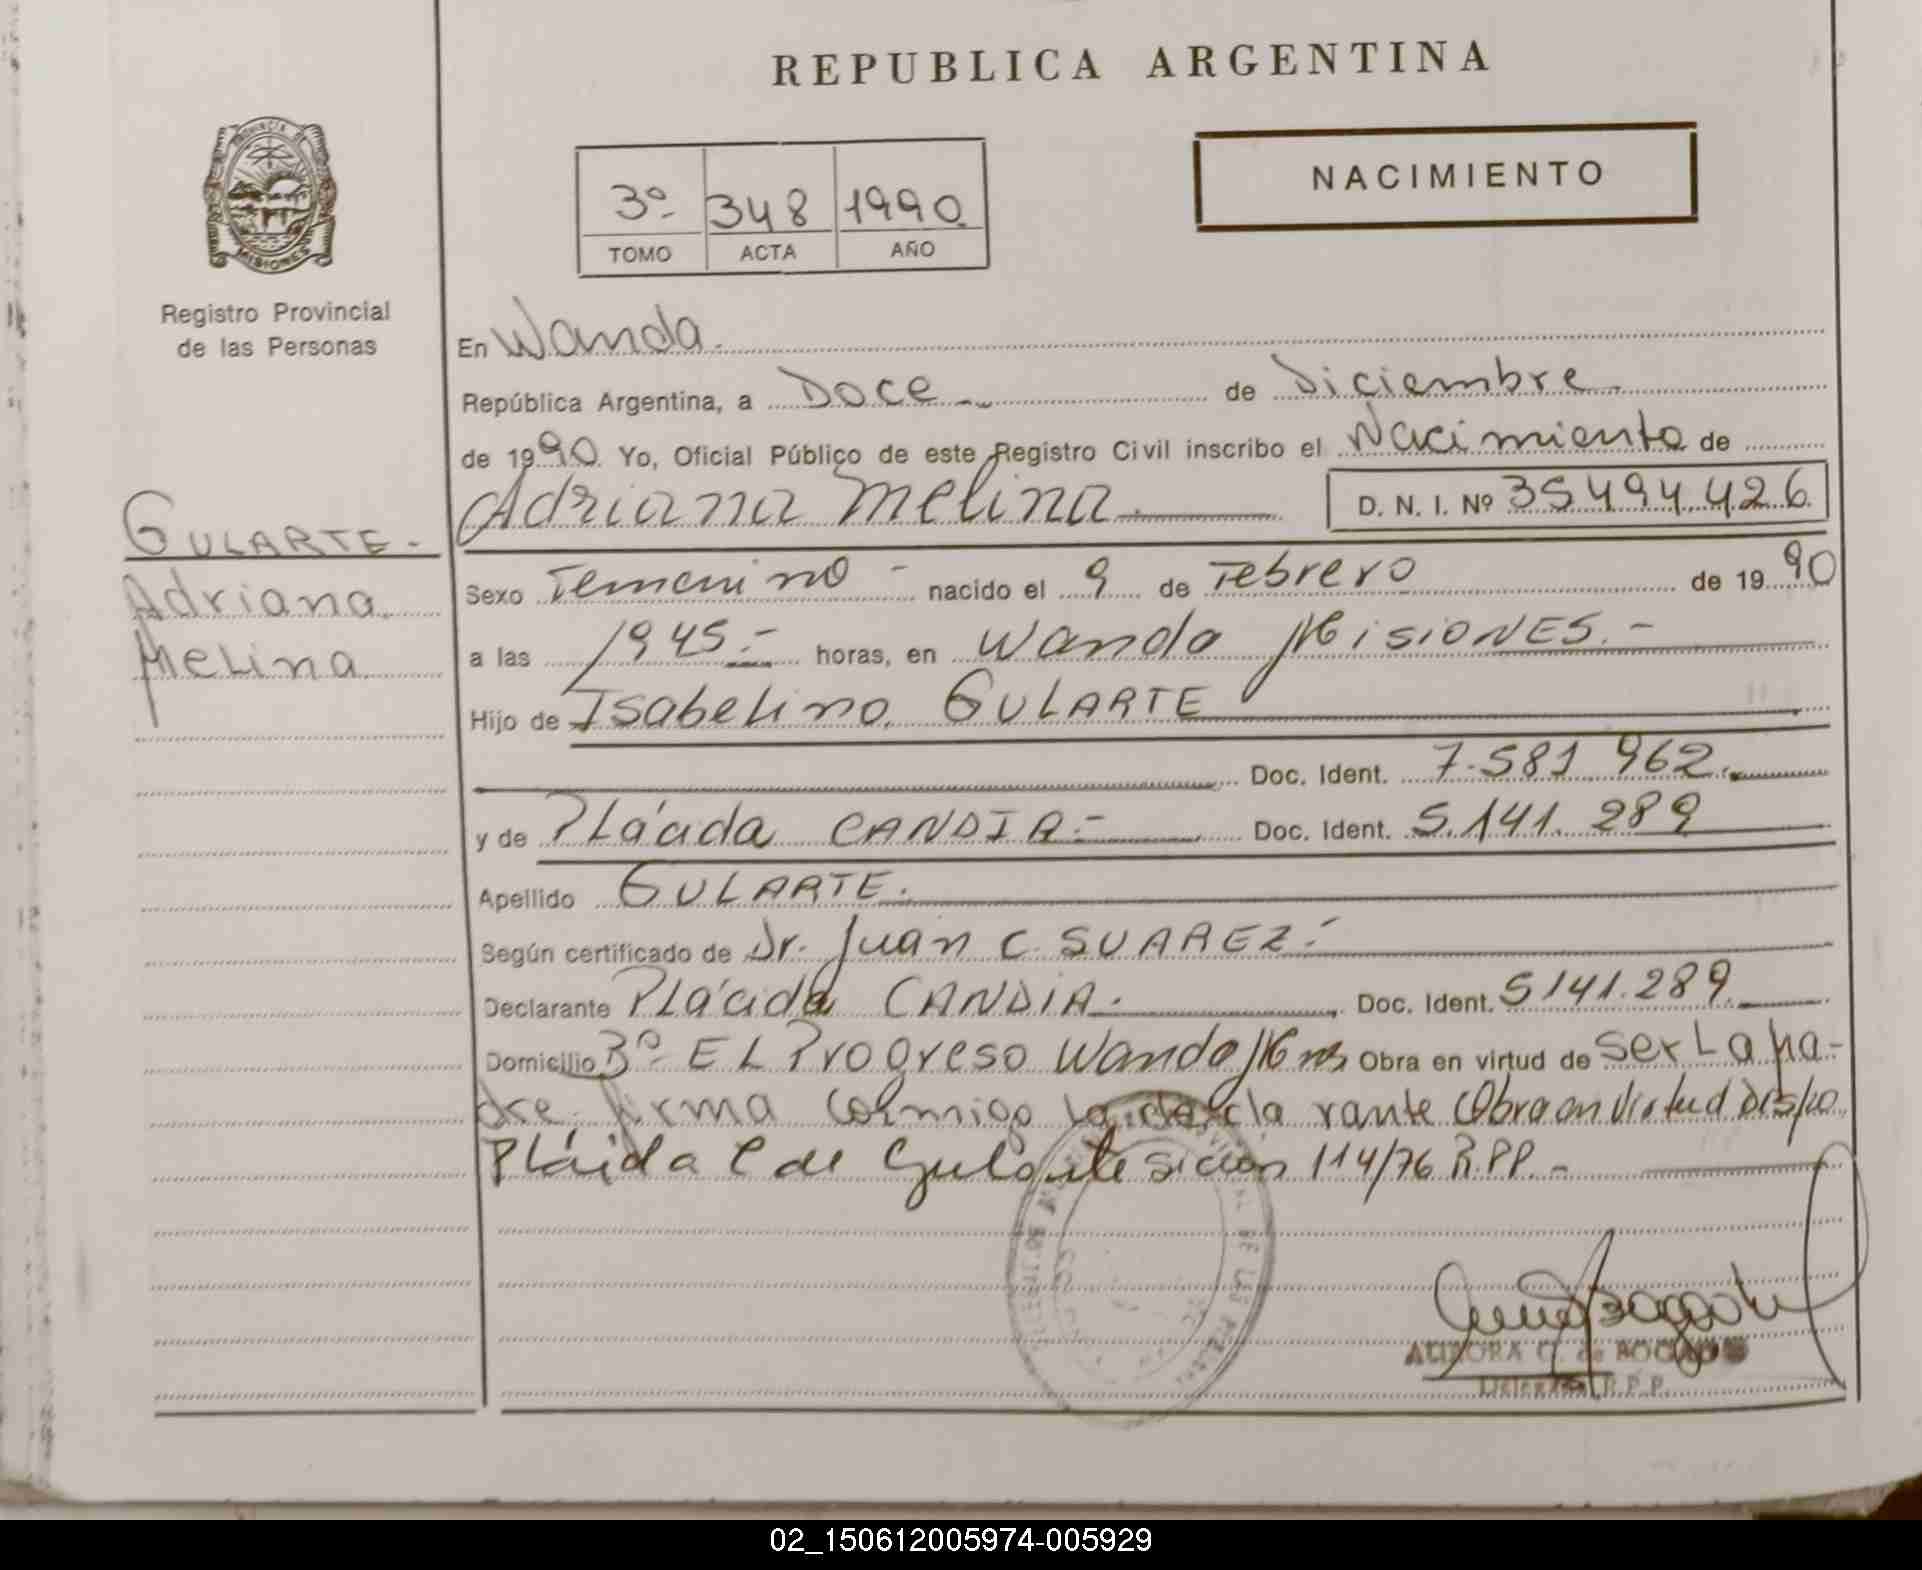 REPUBLICA ARGENTINA
NACIMIENTO
3º 348 1990
TOMO ACTA AÑO
PROVINCIA DE
MISIONES
Registro Provincial
de las Personas
En Wanda.
República Argentina, a Doce de Diciembre
de 1990. Yo, Oficial Público de este Registro Civil inscribo el Nacimiento de
Adriana Melina. D. N. I. Nº 35494.426
GULARTE.-
Adriana
Melina
Sexo Femenino - nacido el 9 de Febrero de 1990
a las 1945.- horas, en Wanda Misiones.-
Hijo de Isabelino GULARTE
Doc. Ident. 7.581 962.
y de Plácida CANDIA.- Doc. Ident. 5.141.289
Apellido GULARTE.
Según certificado de Dr. Juan C. SUAREZ.-
Declarante Plácida CANDIA. Doc. Ident. 5141.289.
Domicilio Bº EL Progreso Wanda Mnes Obra en virtud de ser La Ma-
dre. firma conmigo la decla rante Obra en virtud Dispo
Pláida C de Gularte sición 114/76 R.PP.-
AURORA C. de
Delegada R.P.P.
02_150612005974-005929